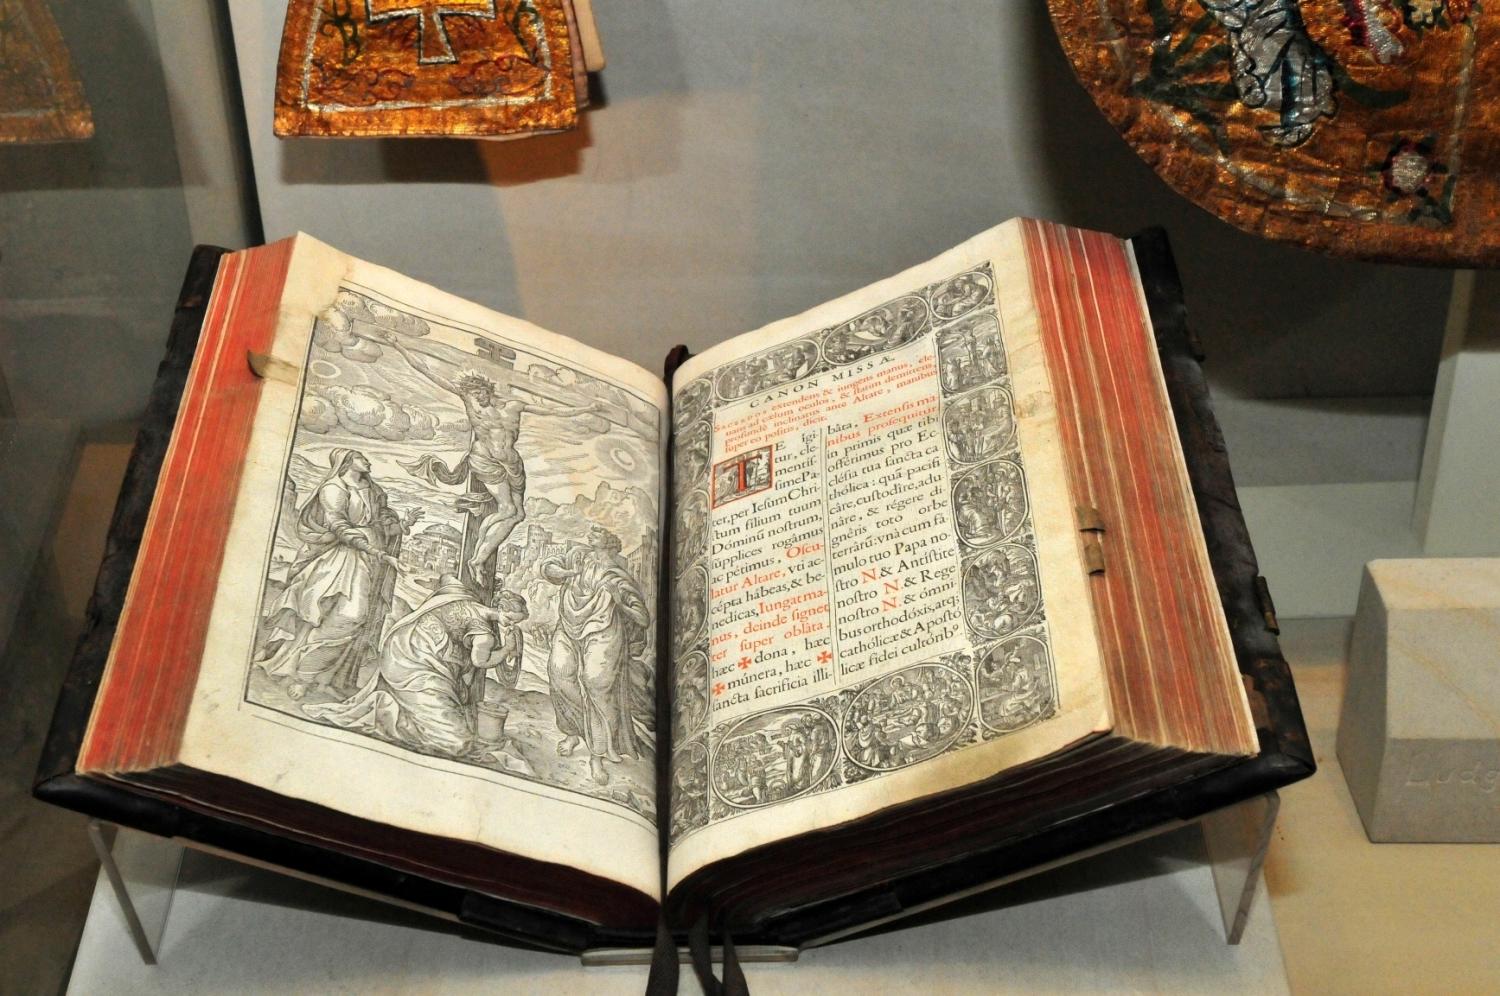 CANON MISSÆ.
Sacerdos extendens & iungens manus, ele-
uans ad cælum oculos, & statim demittens,
profundè inclinatus ante Altare, manibus
super eo positis, dicit.
TE igi-
tur, cle-
mentis-
sime Pa-
ter, per Iesum Chri-
stum filium tuum
Dóminũ nostrum,
súpplices rogámus
ac pétimus, Oscu-
latur Altare, vti ac-
cépta hábeas, & be-
nedícas, Iungat ma-
nus, deinde signet
ter super obláta.
hæc ✠ dona, hæc
✠ múnera, hæc ✠
sancta sacrifícia illi-
báta, Extensis ma-
nibus prosequitur
in primis quæ tibi
offérimus pro Ec-
clésia tua sancta ca
thólica: quã pacifi
cáre, custodíre, adu
náre, & régere di
gnéris toto orbe
terrárũ: vnà cum fá-
mulo tuo Papa no-
stro N. & Antístite
nostro N. & Rege
nostro N. & ómni-
bus orthodóxis, atq;
cathólicæ & Aposto
licæ fídei cultórib⁹.
Ludg